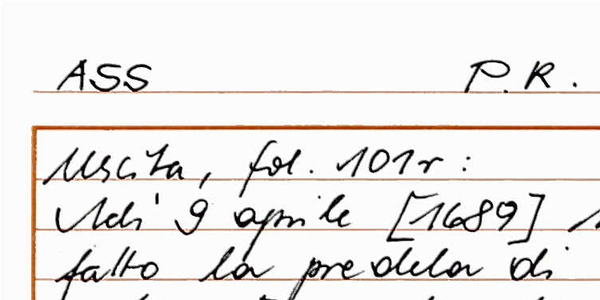 ASS P.R.
Uscita, fol. 101r:
Adi' 9 aprile [1689]
fatto la predela di